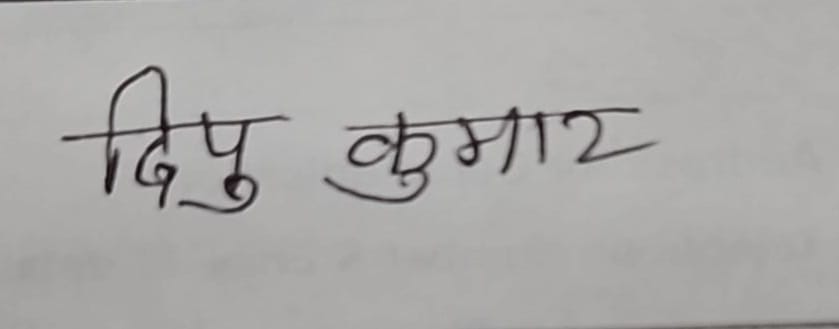 दिपु कुमार